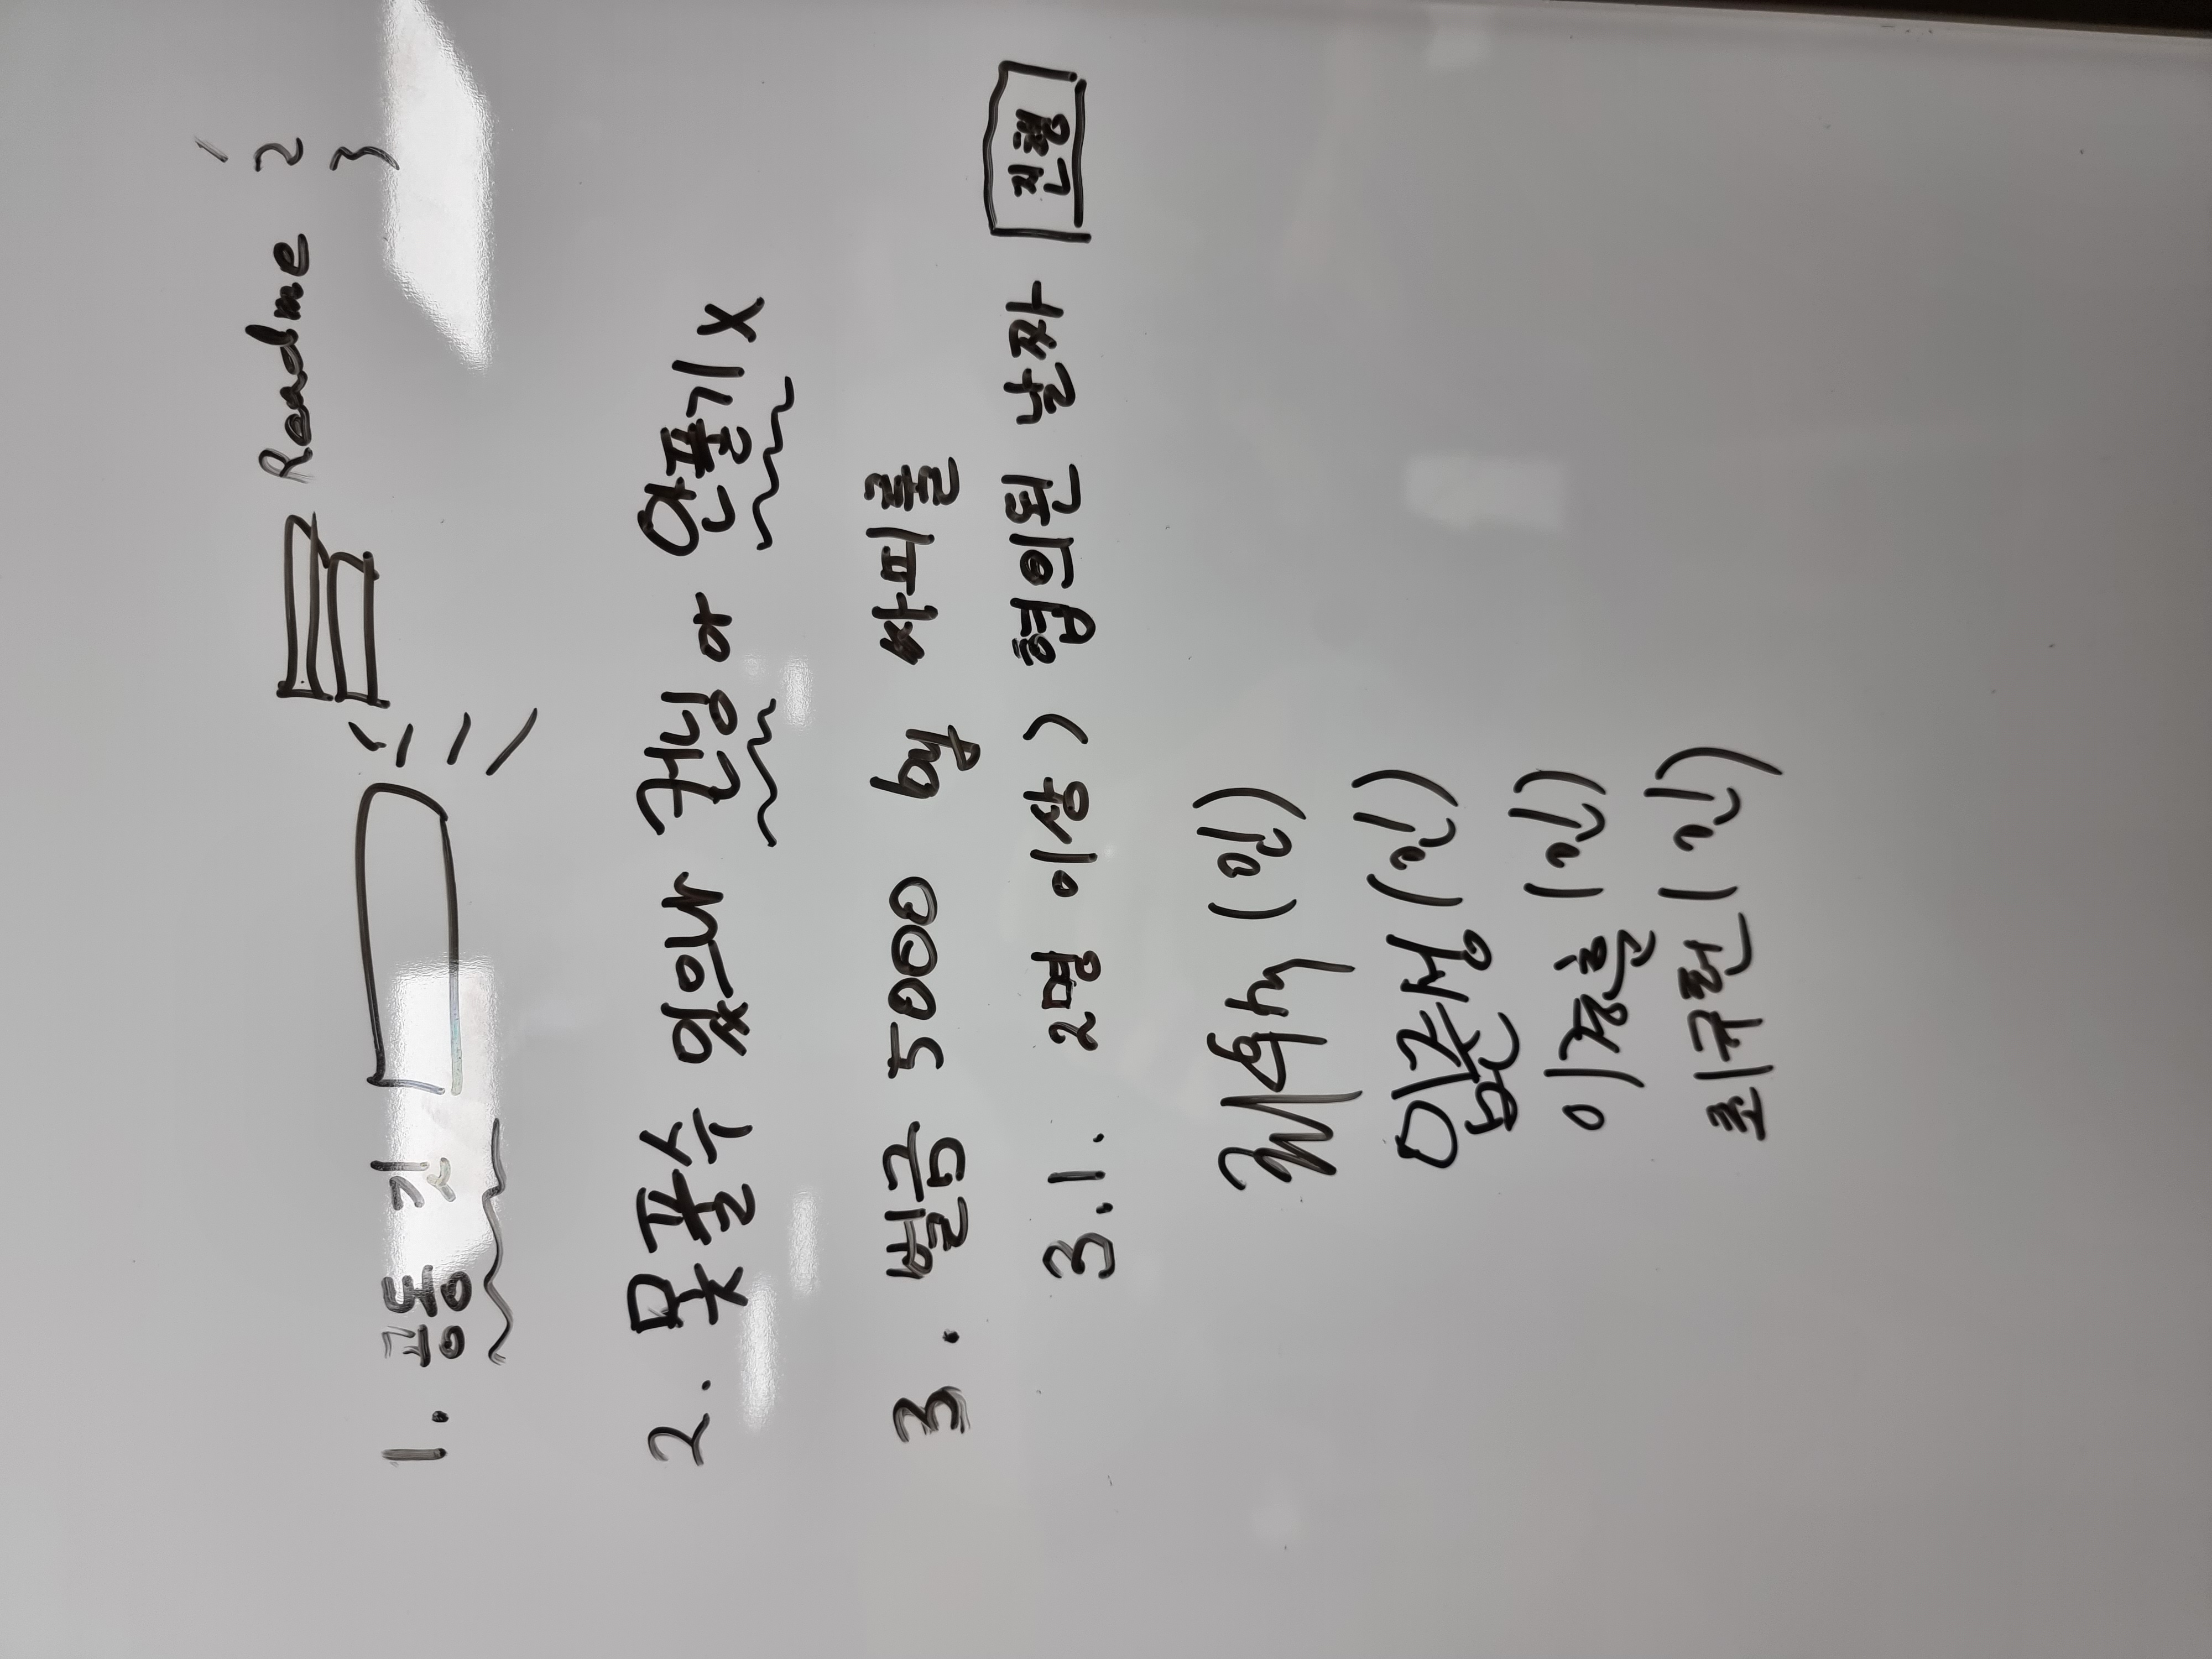 1. 공동 깃 Readme 1
2
3
2. 못풀수 있으나 컨닝 or 안풀기 x
3. 벌금 5000 by 싸피룰
3.1. 2명 이상 > 협의된 날짜 진행
(인)
임준성 (인)
이경훈 (인)
최규헌 (인)